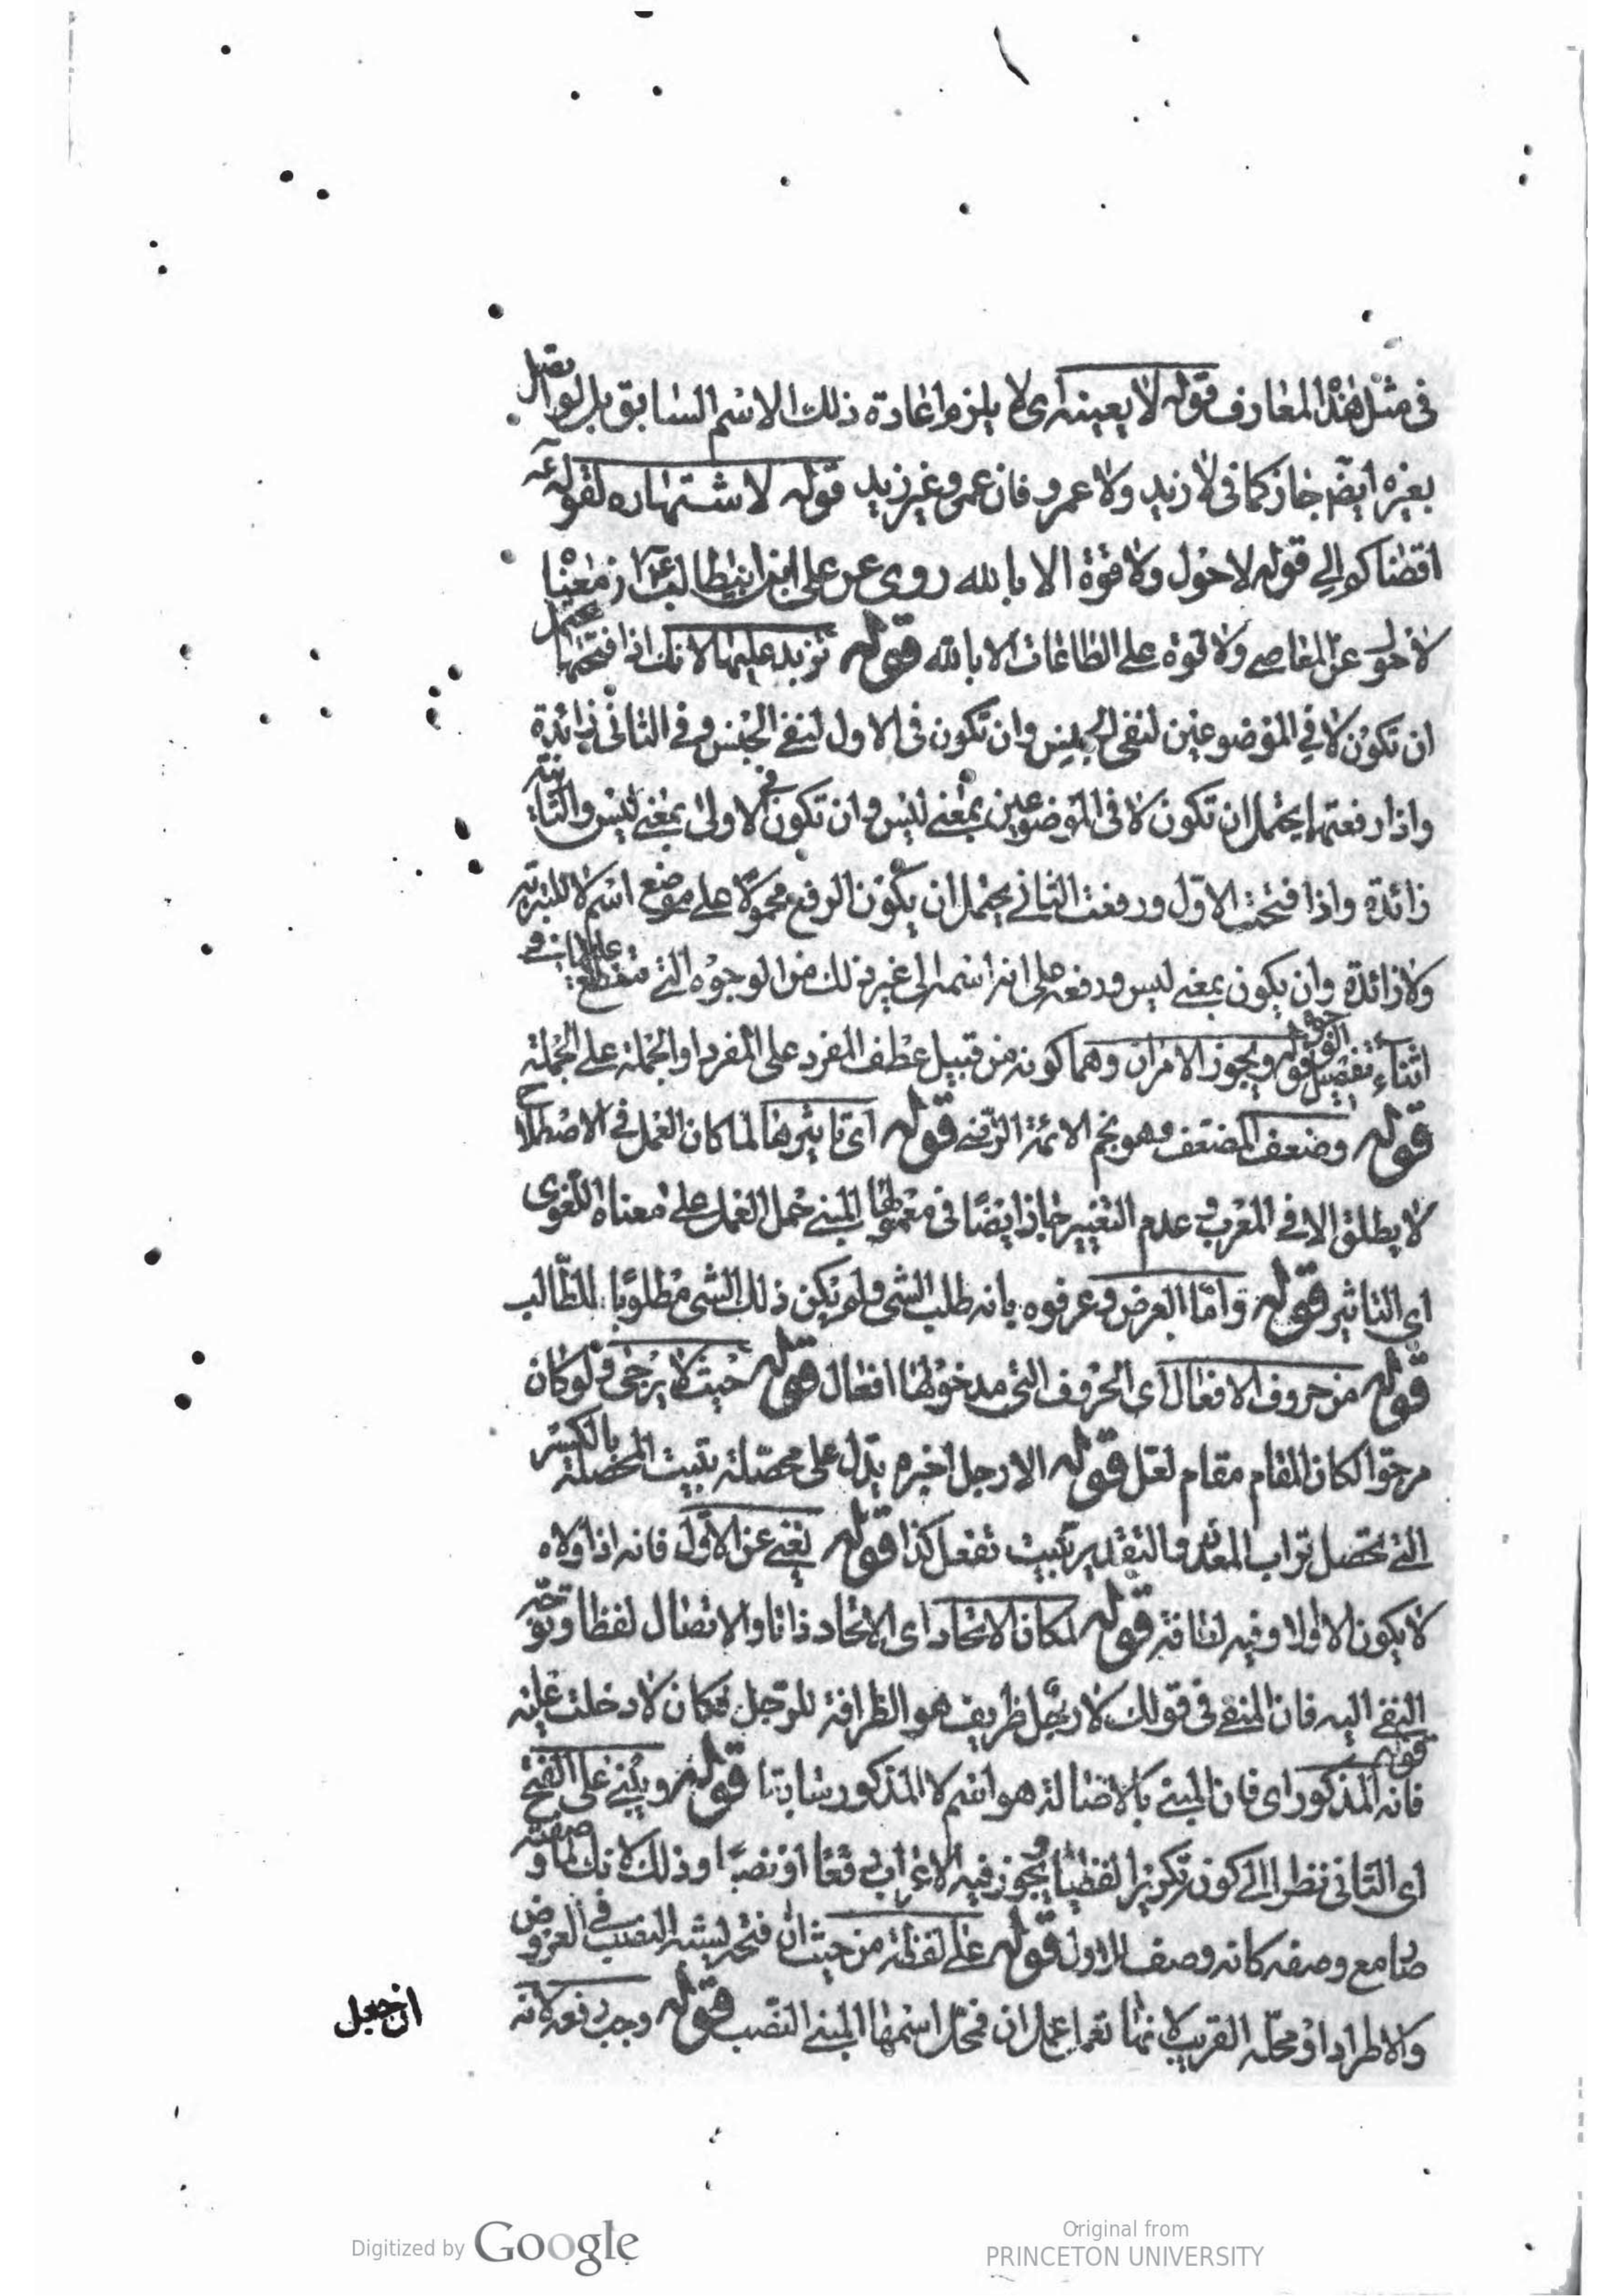 في مثل هذا المعارف قوله لا بعينه اى لا يلزم اعادة ذلك الاسم السابق بل لو اتصل
بغيره ايضم جاز كما فى لا زيد ولا عمرو فان عمرو غير زيد قوله لاشتهاره لقوله عم
اقضاكم الى قوله لا حول ولا قوة الا بالله روى عن على ابن ابيطالب ان معنا
لا حول عن المعاصى ولا قوة على الطاعات الا بالله قوله تزيد عليها لانك اذا فتحتها يحتمل
ان تكون لا فى الموضوعين لنفى الجنس وان تكون فى الاول لنفى الجنس وفى الثانى زائدة
واذا رفعتها يحتمل ان تكون لا فى الموضوعين بمعنى ليس وان تكون فى الاولى بمعنى ليس والثانية
زائدة واذا فتحت الاول ورفعت الثانى يحتمل ان يكون الرفع محمولا على موضع اسم لا للتبرية
ولا زائدة وان يكون بمعنى ليس ورفعه على انه اسمه الى غير ذلك من الوجوه التى ستطلع عليها فى
اثناء تفصيل القول قوله ويجوز الامران وهما كونه من قبيل عطف المفرد على المفرد او الجملة على الجملة
قوله وضعف المضعف هو نجم الائمة الرضى قوله اى تاثيرها لما كان العمل فى الاصطلاح
لا يطلق الا فى المعرب وعدم التغيير جاز ايضا فى معمولها المبنى حمل العمل على معناه اللغوى
اى التاثير قوله واما العرض وعرفوه بانه طلب الشى ولم يكن ذلك الشى مطلوبا للطالب
قوله من حروف الافعال اى الحروف التى مدخولها افعال قوله حيث لا يرجى ولو كان
مرجوا لكان المقام مقام لعل قوله الا رجل اخرم يدل على محصلة تبيت المحصلة بالكسر
التى تحصل تراب المعدن والتقدير تبيت تفعل كذا قوله يغنى عن الاول فانه اذا ولاه
لا يكون الا اولا وفيه لنافة قوله لمكان الاتحاد اى الاتحاد ذاتا والاتصال لفظا وتوجه
النفى اليه فان المنفى فى قولك لا رجل ظريف هو الظرافة للرجل فكان لا دخلت عليه
قوله فانه المذكور اى فان المبنى بالاصالة هو اسم لا المذكور سابقا قوله ويبنى على الفتح
اى الثانى نظرا الى كونه تكريرا لفظيا ويجوز فيه الاعراب رفعا او نصبا وذلك لانك لما وصفته
صار مع وصفه كانه وصف للاول قوله على لفظه من حيث ان فتحه يشبه النصب فى العروض
والاطراد او محله القريب لانها تعمل عمل ان فمحل اسمها المبنى النصب قوله وجب رفعه لانه
ان جعل
Digitized by Google
Original from
PRINCETON UNIVERSITY